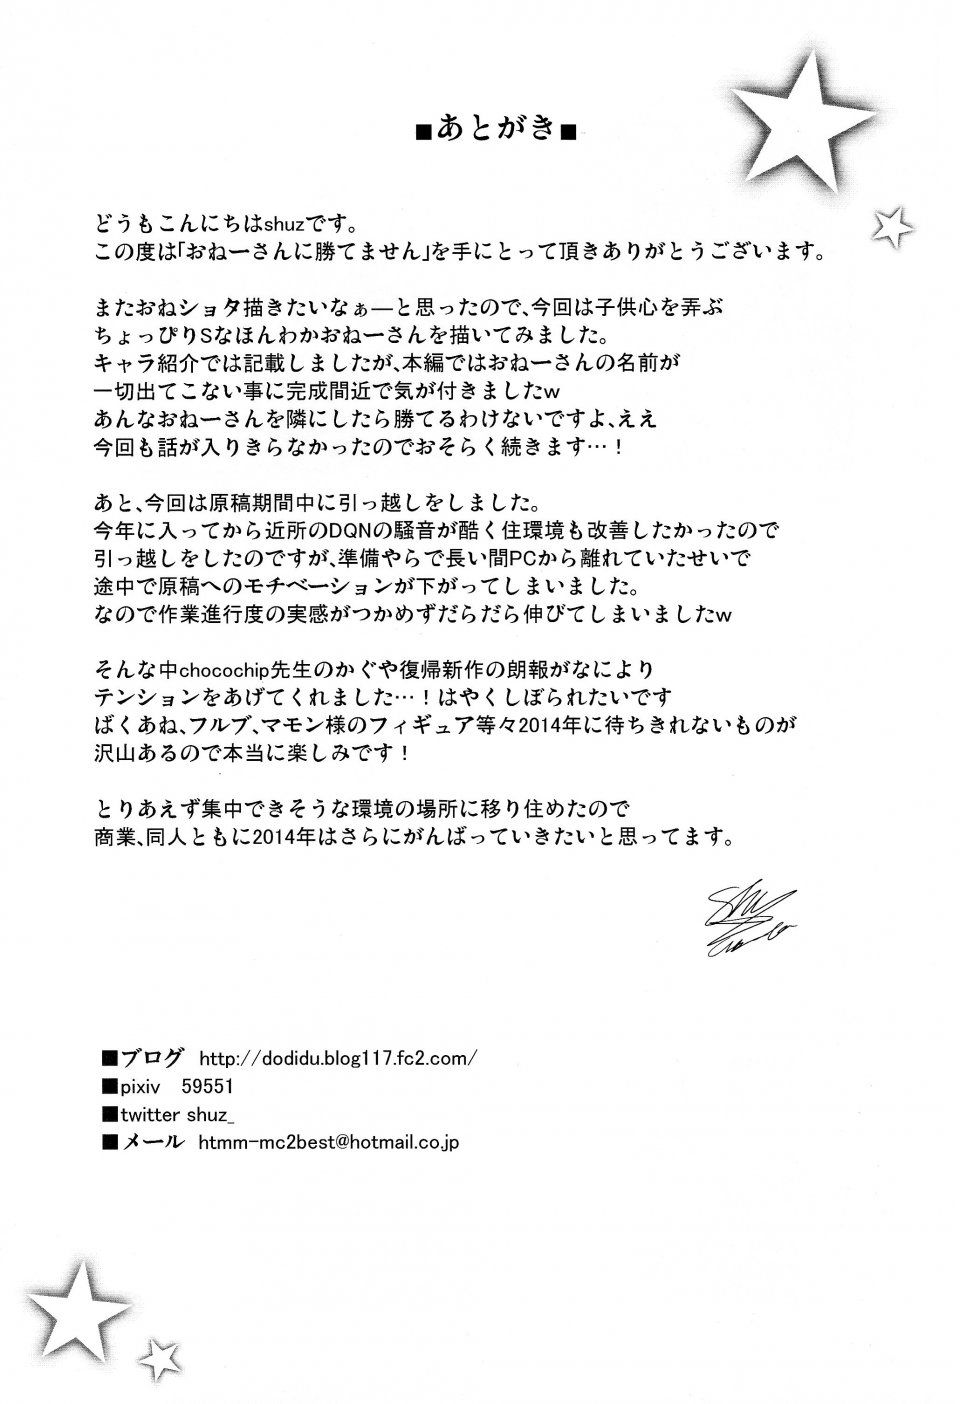 ■あとがき■
どうもこんにちはshuzです。
この度は「おねーさんに勝てません」を手にとって頂きありがとうございます。
またおねショタ描きたいなぁ―と思ったので、今回は子供心を弄ぶ
ちょっぴりSなほんわかおねーさんを描いてみました。
キャラ紹介では記載しましたが、本編ではおねーさんの名前が
一切出てこない事に完成間近で気が付きましたw
あんなおねーさんを隣にしたら勝てるわけないですよ、ええ
今回も話が入りきらなかったのでおそらく続きます…！
あと、今回は原稿期間中に引っ越しをしました。
今年に入ってから近所のDQNの騒音が酷く住環境も改善したかったので
引っ越しをしたのですが、準備やらで長い間PCから離れていたせいで
途中で原稿へのモチベーションが下がってしまいました。
なので作業進行度の実感がつかめずだらだら伸びてしまいましたw
そんな中chocochip先生のかぐや復帰新作の朗報がなにより
テンションをあげてくれました…！はやくしぼられたいです
ばくあね、フルブ、マモン様のフィギュア等々2014年に待ちきれないものが
沢山あるので本当に楽しみです！
とりあえず集中できそうな環境の場所に移り住めたので
商業、同人ともに2014年はさらにがんばっていきたいと思ってます。
■ブログ http://dodidu.blog117.fc2.com/
■pixiv 59551
■twitter shuz_
■メール htmm-mc2best@hotmail.co.jp